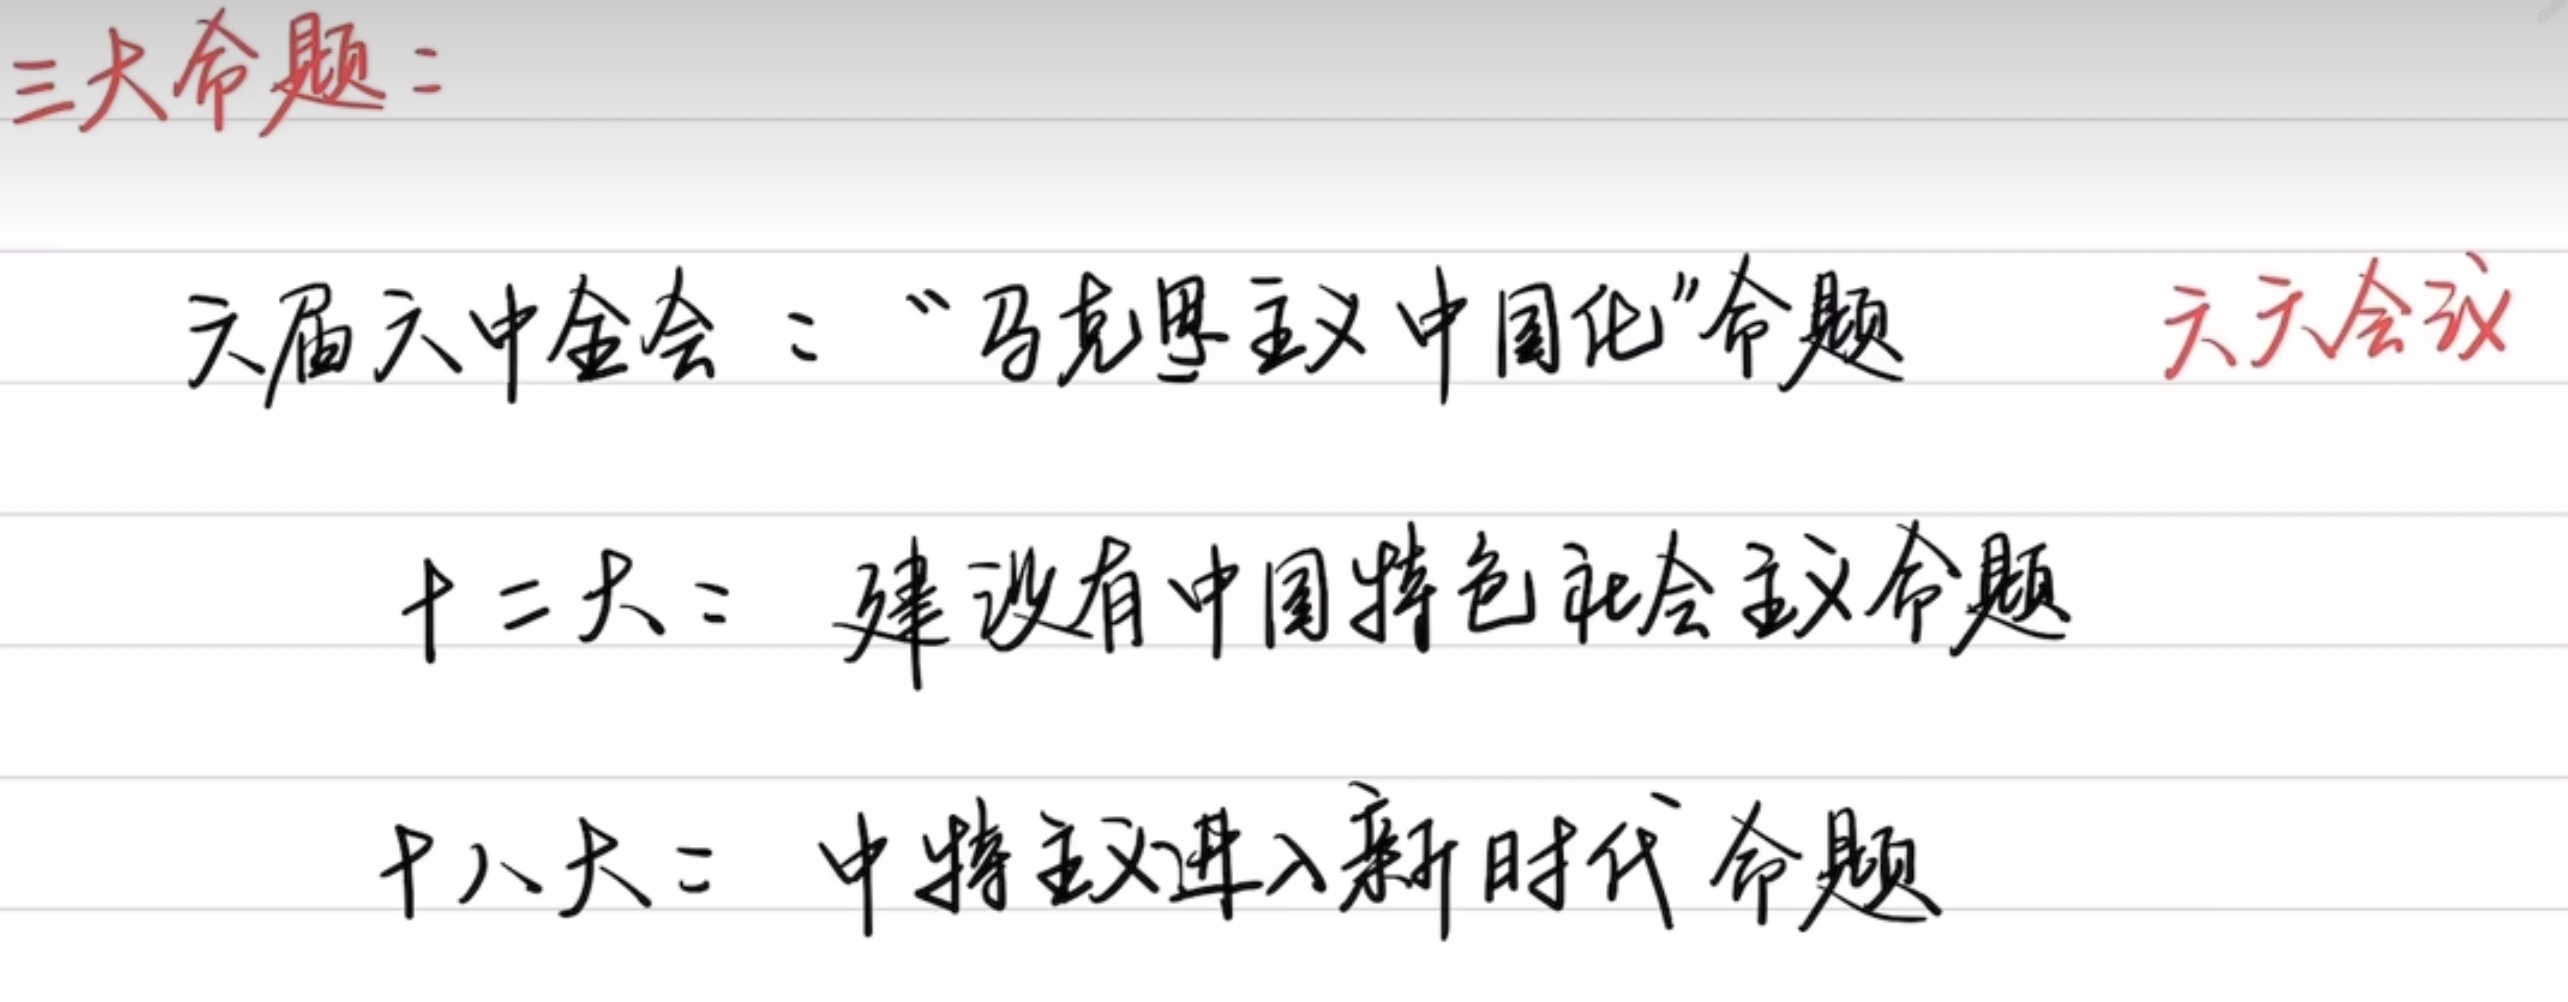 三大命题：
六届六中全会："马克思主义中国化"命题 六六会议
十二大：建设有中国特色社会主义命题
十八大：中特主义进入新时代命题